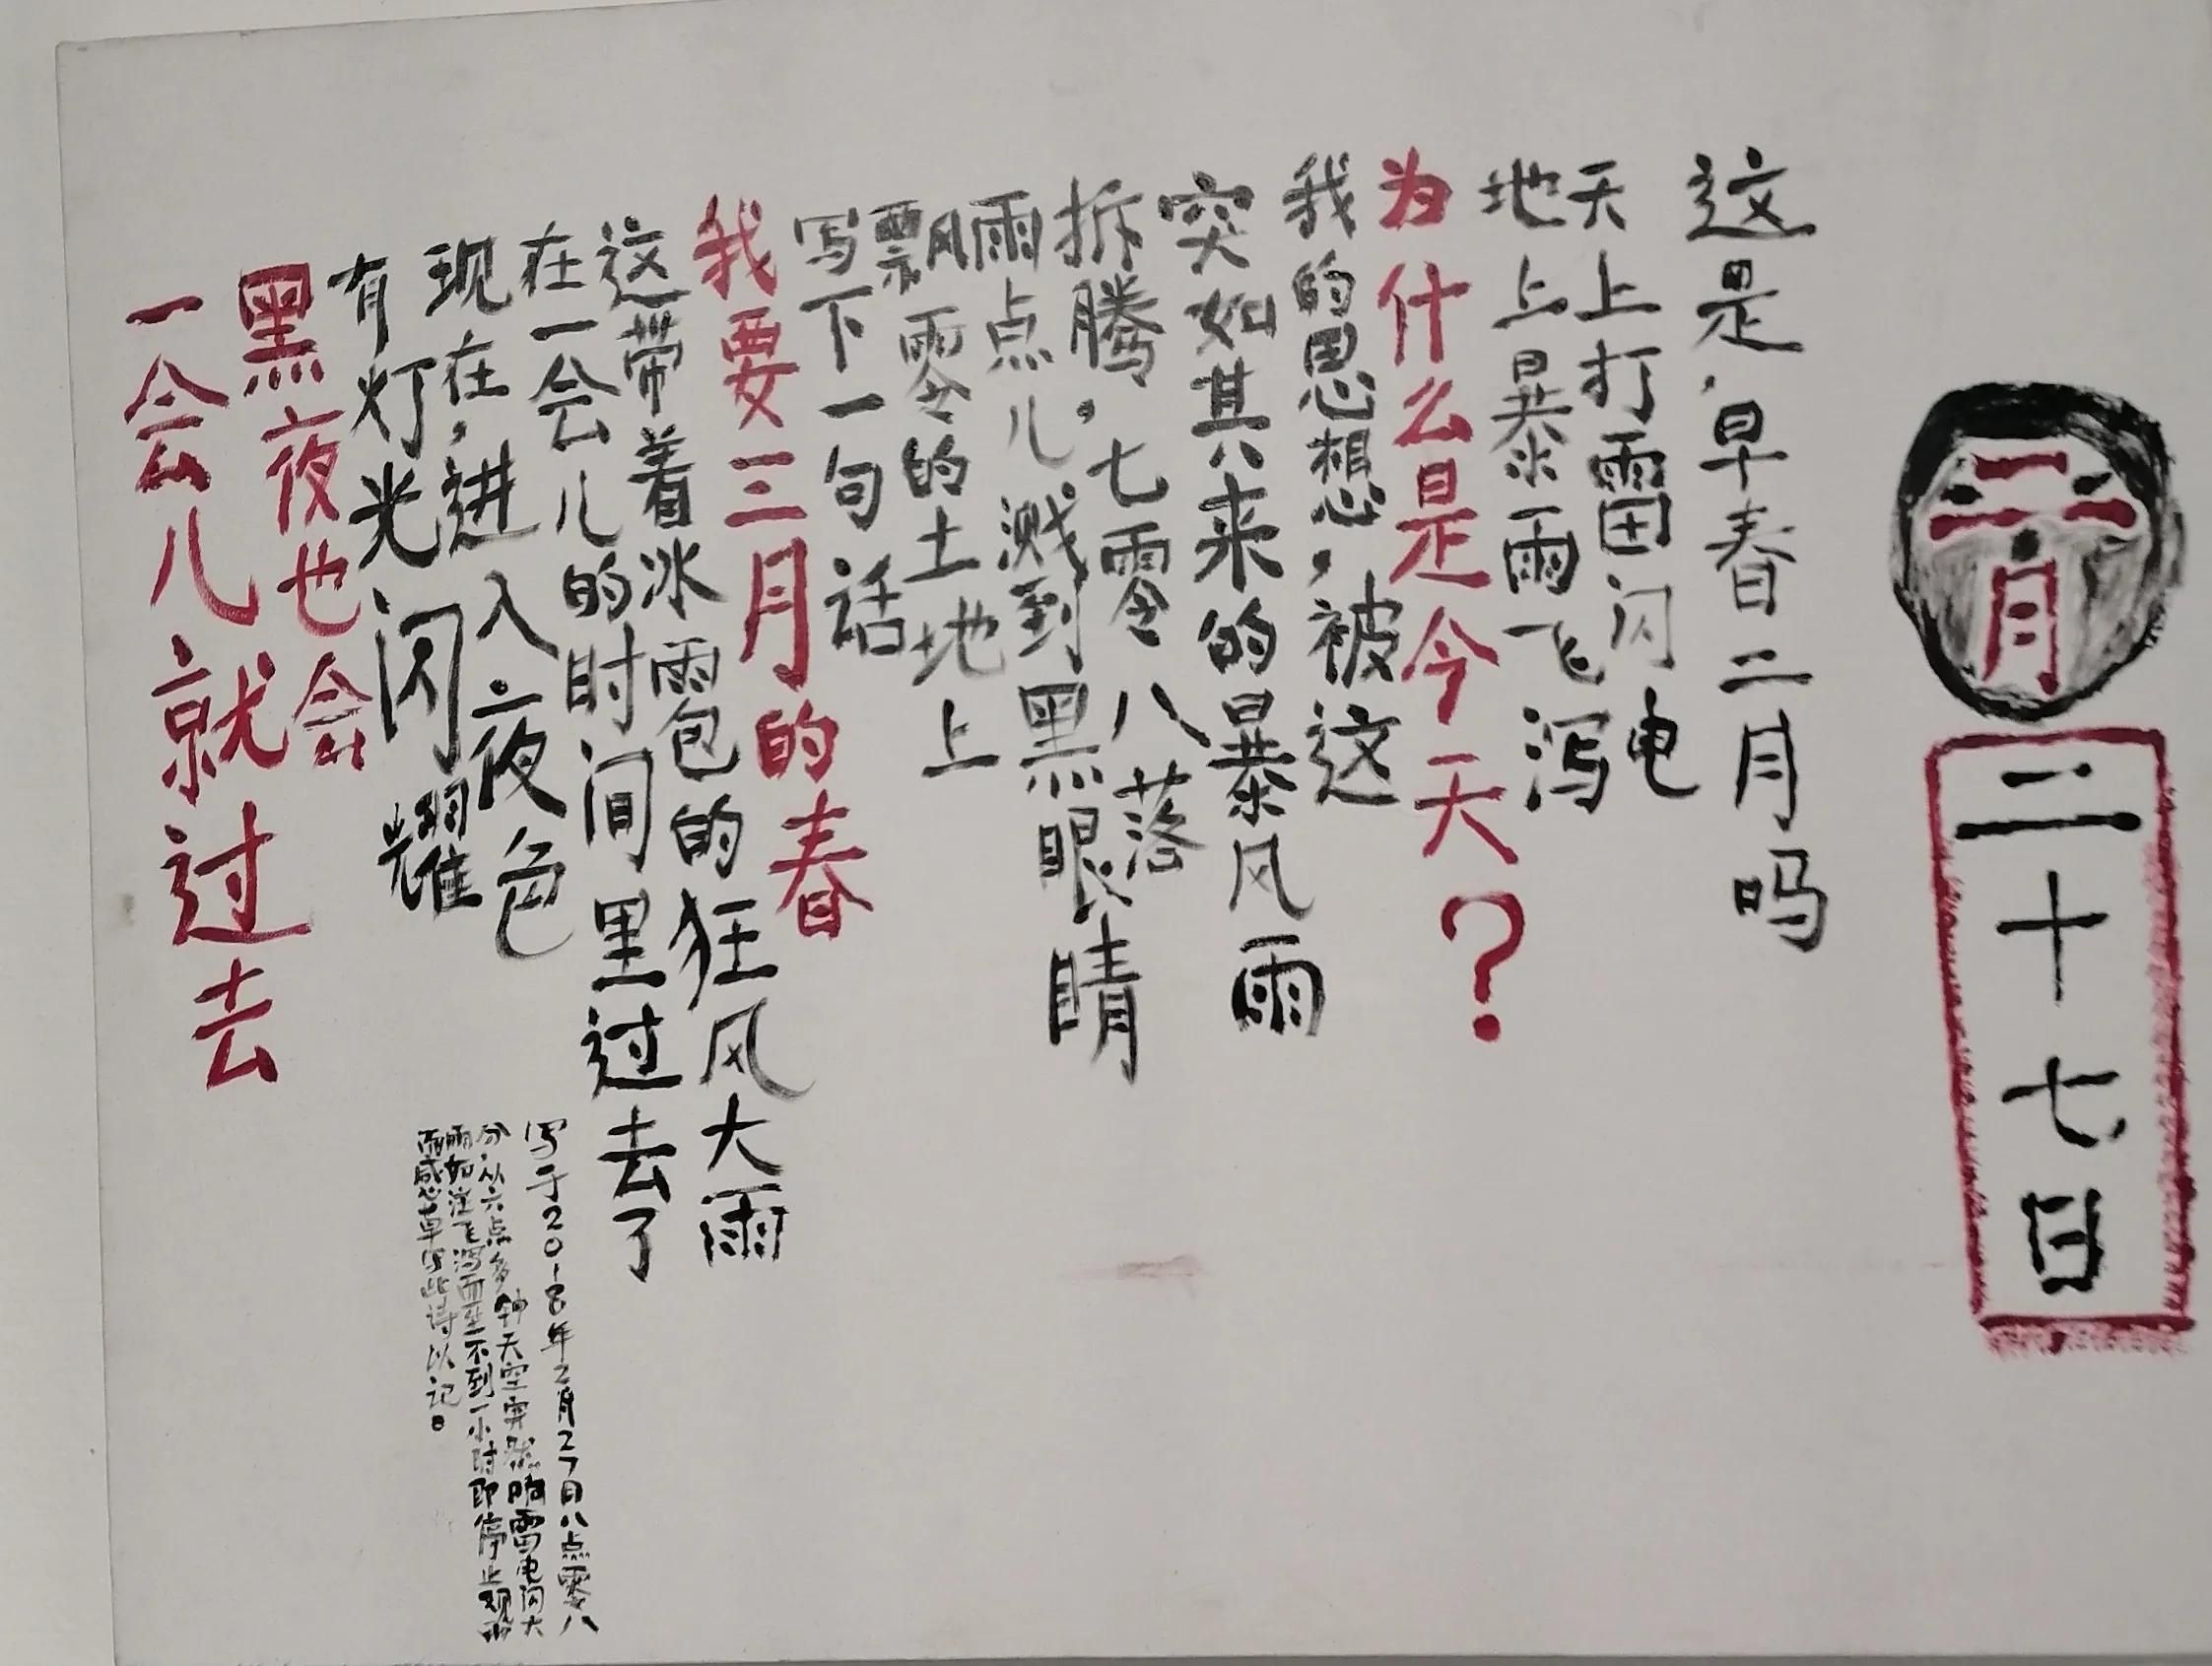 二月
二十七日
这是，早春二月吗
天上打雷闪电
地上暴雨飞泻
为什么是今天？
我的思想，被这
突如其来的暴风雨
拆腾，七零八落
雨点儿溅到黑眼睛
飘零的土地上
写下一句话
我要三月的春
这带着冰雨包的狂风大雨
在一会儿的时间里过去了
现在，进入夜色
有灯光闪耀
黑夜也会
一会儿就过去
写于2018年2月27日八点零八
分，从六点多钟天空突然响雷电闪大
雨如注飞泻而至不到一小时即停止观
而感草写此诗以记。